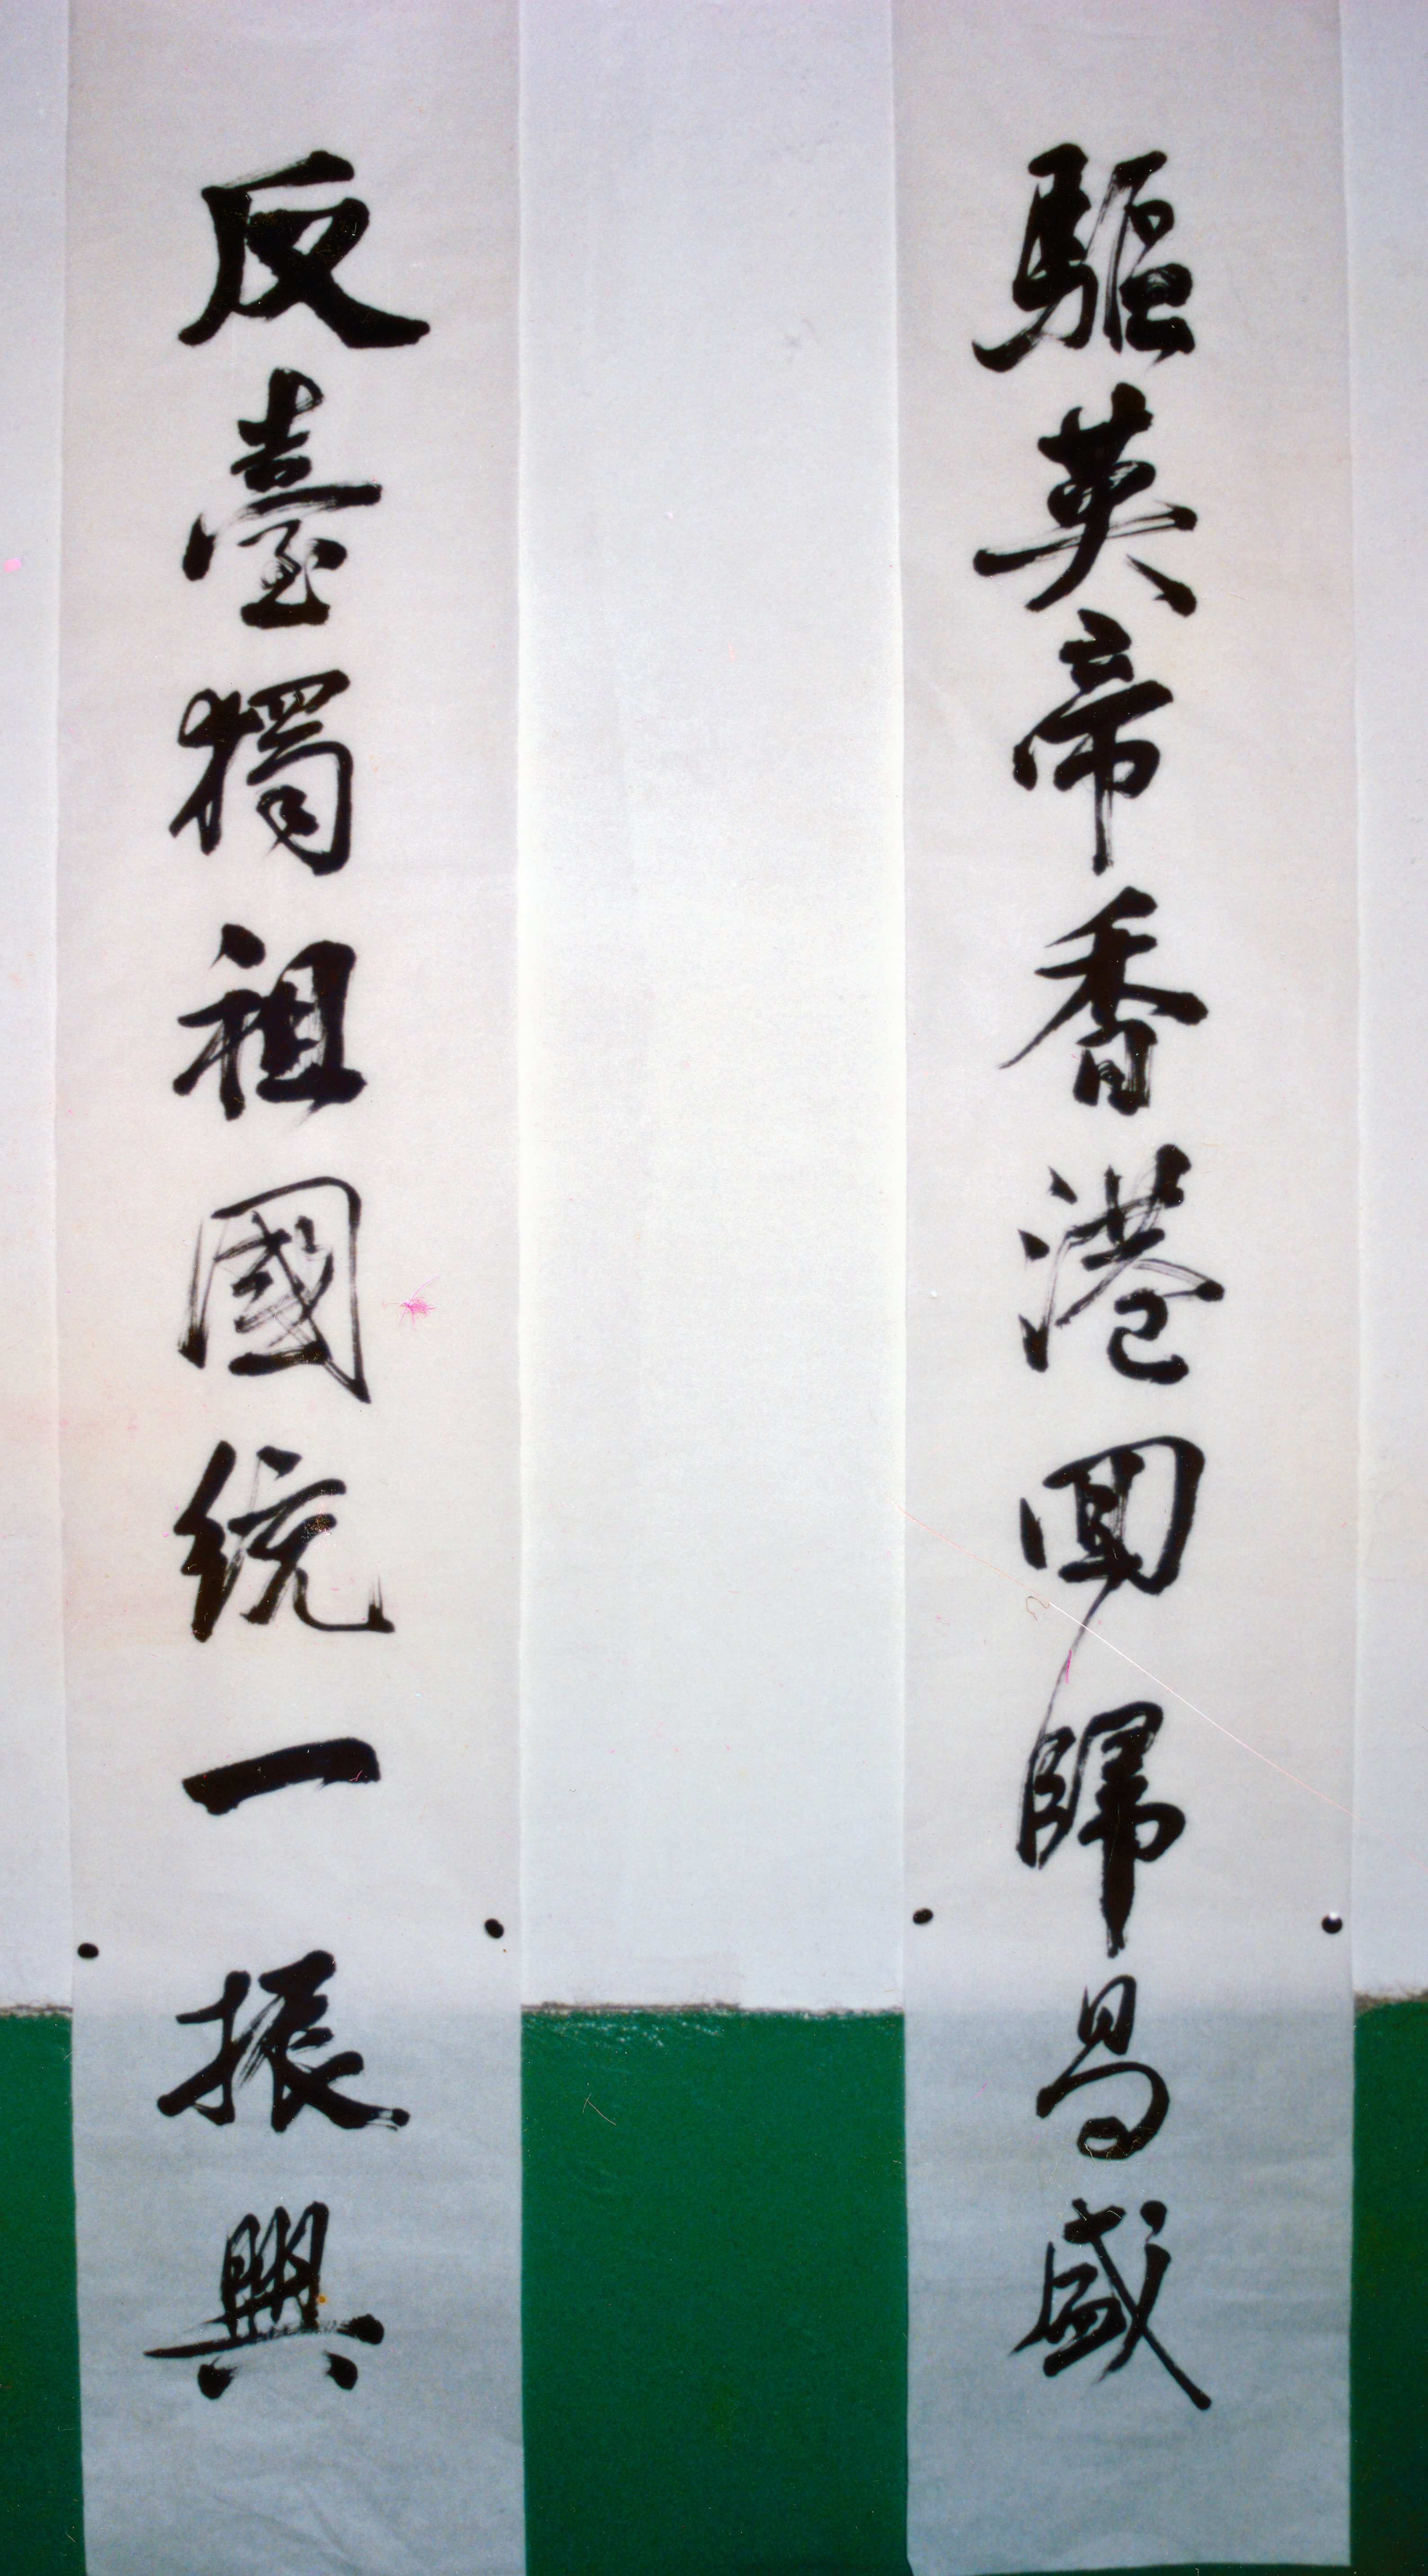 驅英帝香港回歸昌盛
反臺獨祖國統一振興